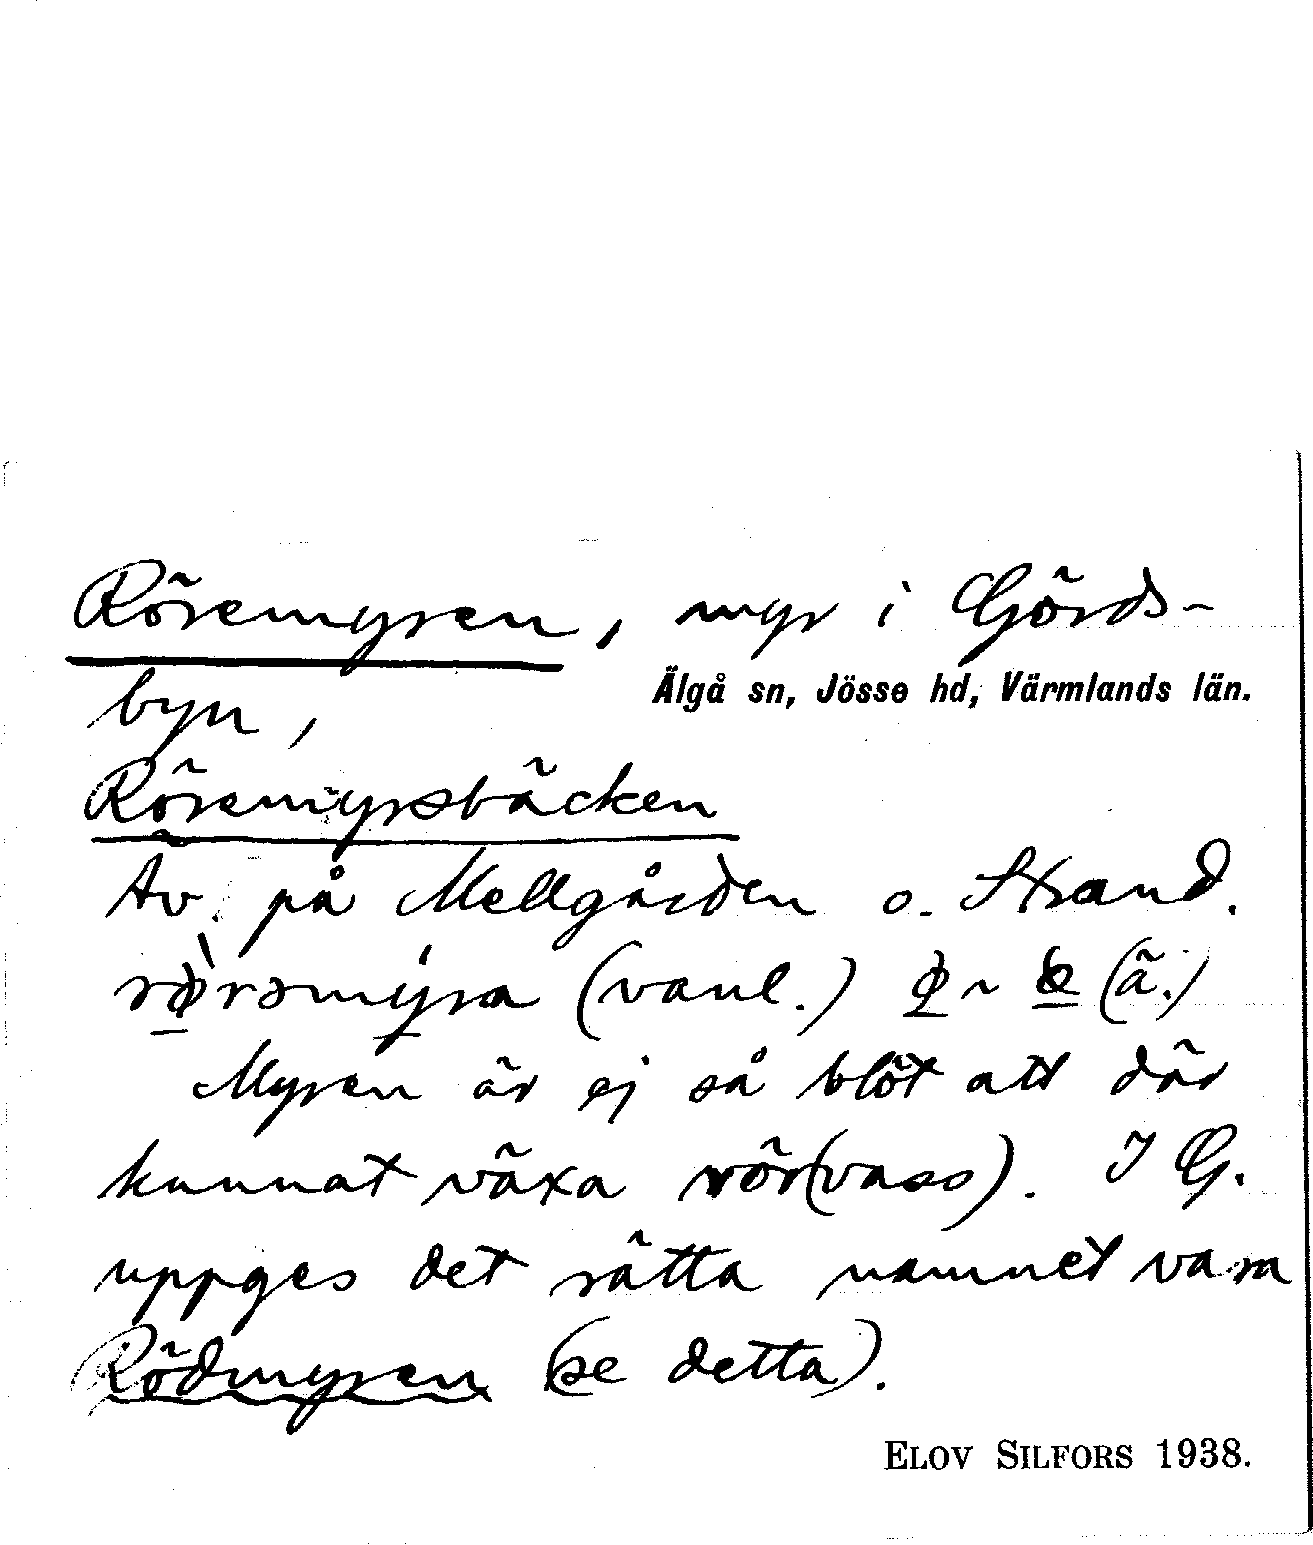 Röremyren, myr i Görds-
Älgå sn, Jösse hd, Värmlands län.
byn,
Röremyrsbäcken
Av. på Mellgården o. Strand.
(vanl.) (ä.)
Myren är ej så blöt att där
kunnat växa rör(vass). I G.
uppges det rätta namnet vara
Rödmyren (se detta).
ELOV SILFORS 1938.